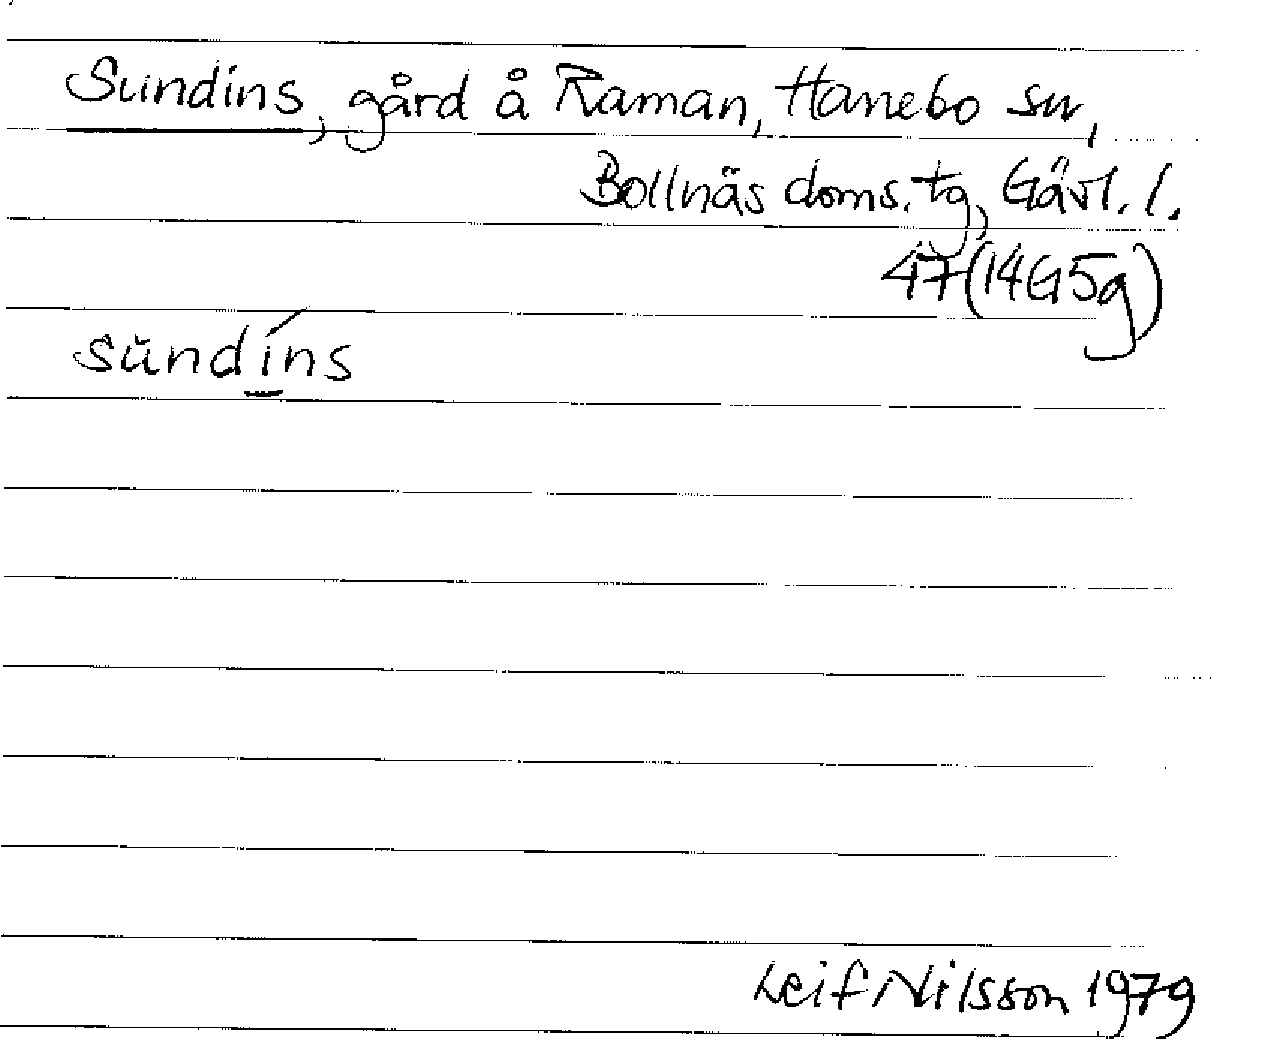 Sundins, gård å Raman, Hanebo sn,
Bollnäs doms. tg, Gävl. l.
47 (14G5g)
sŭndíns
Leif Nilsson 1979